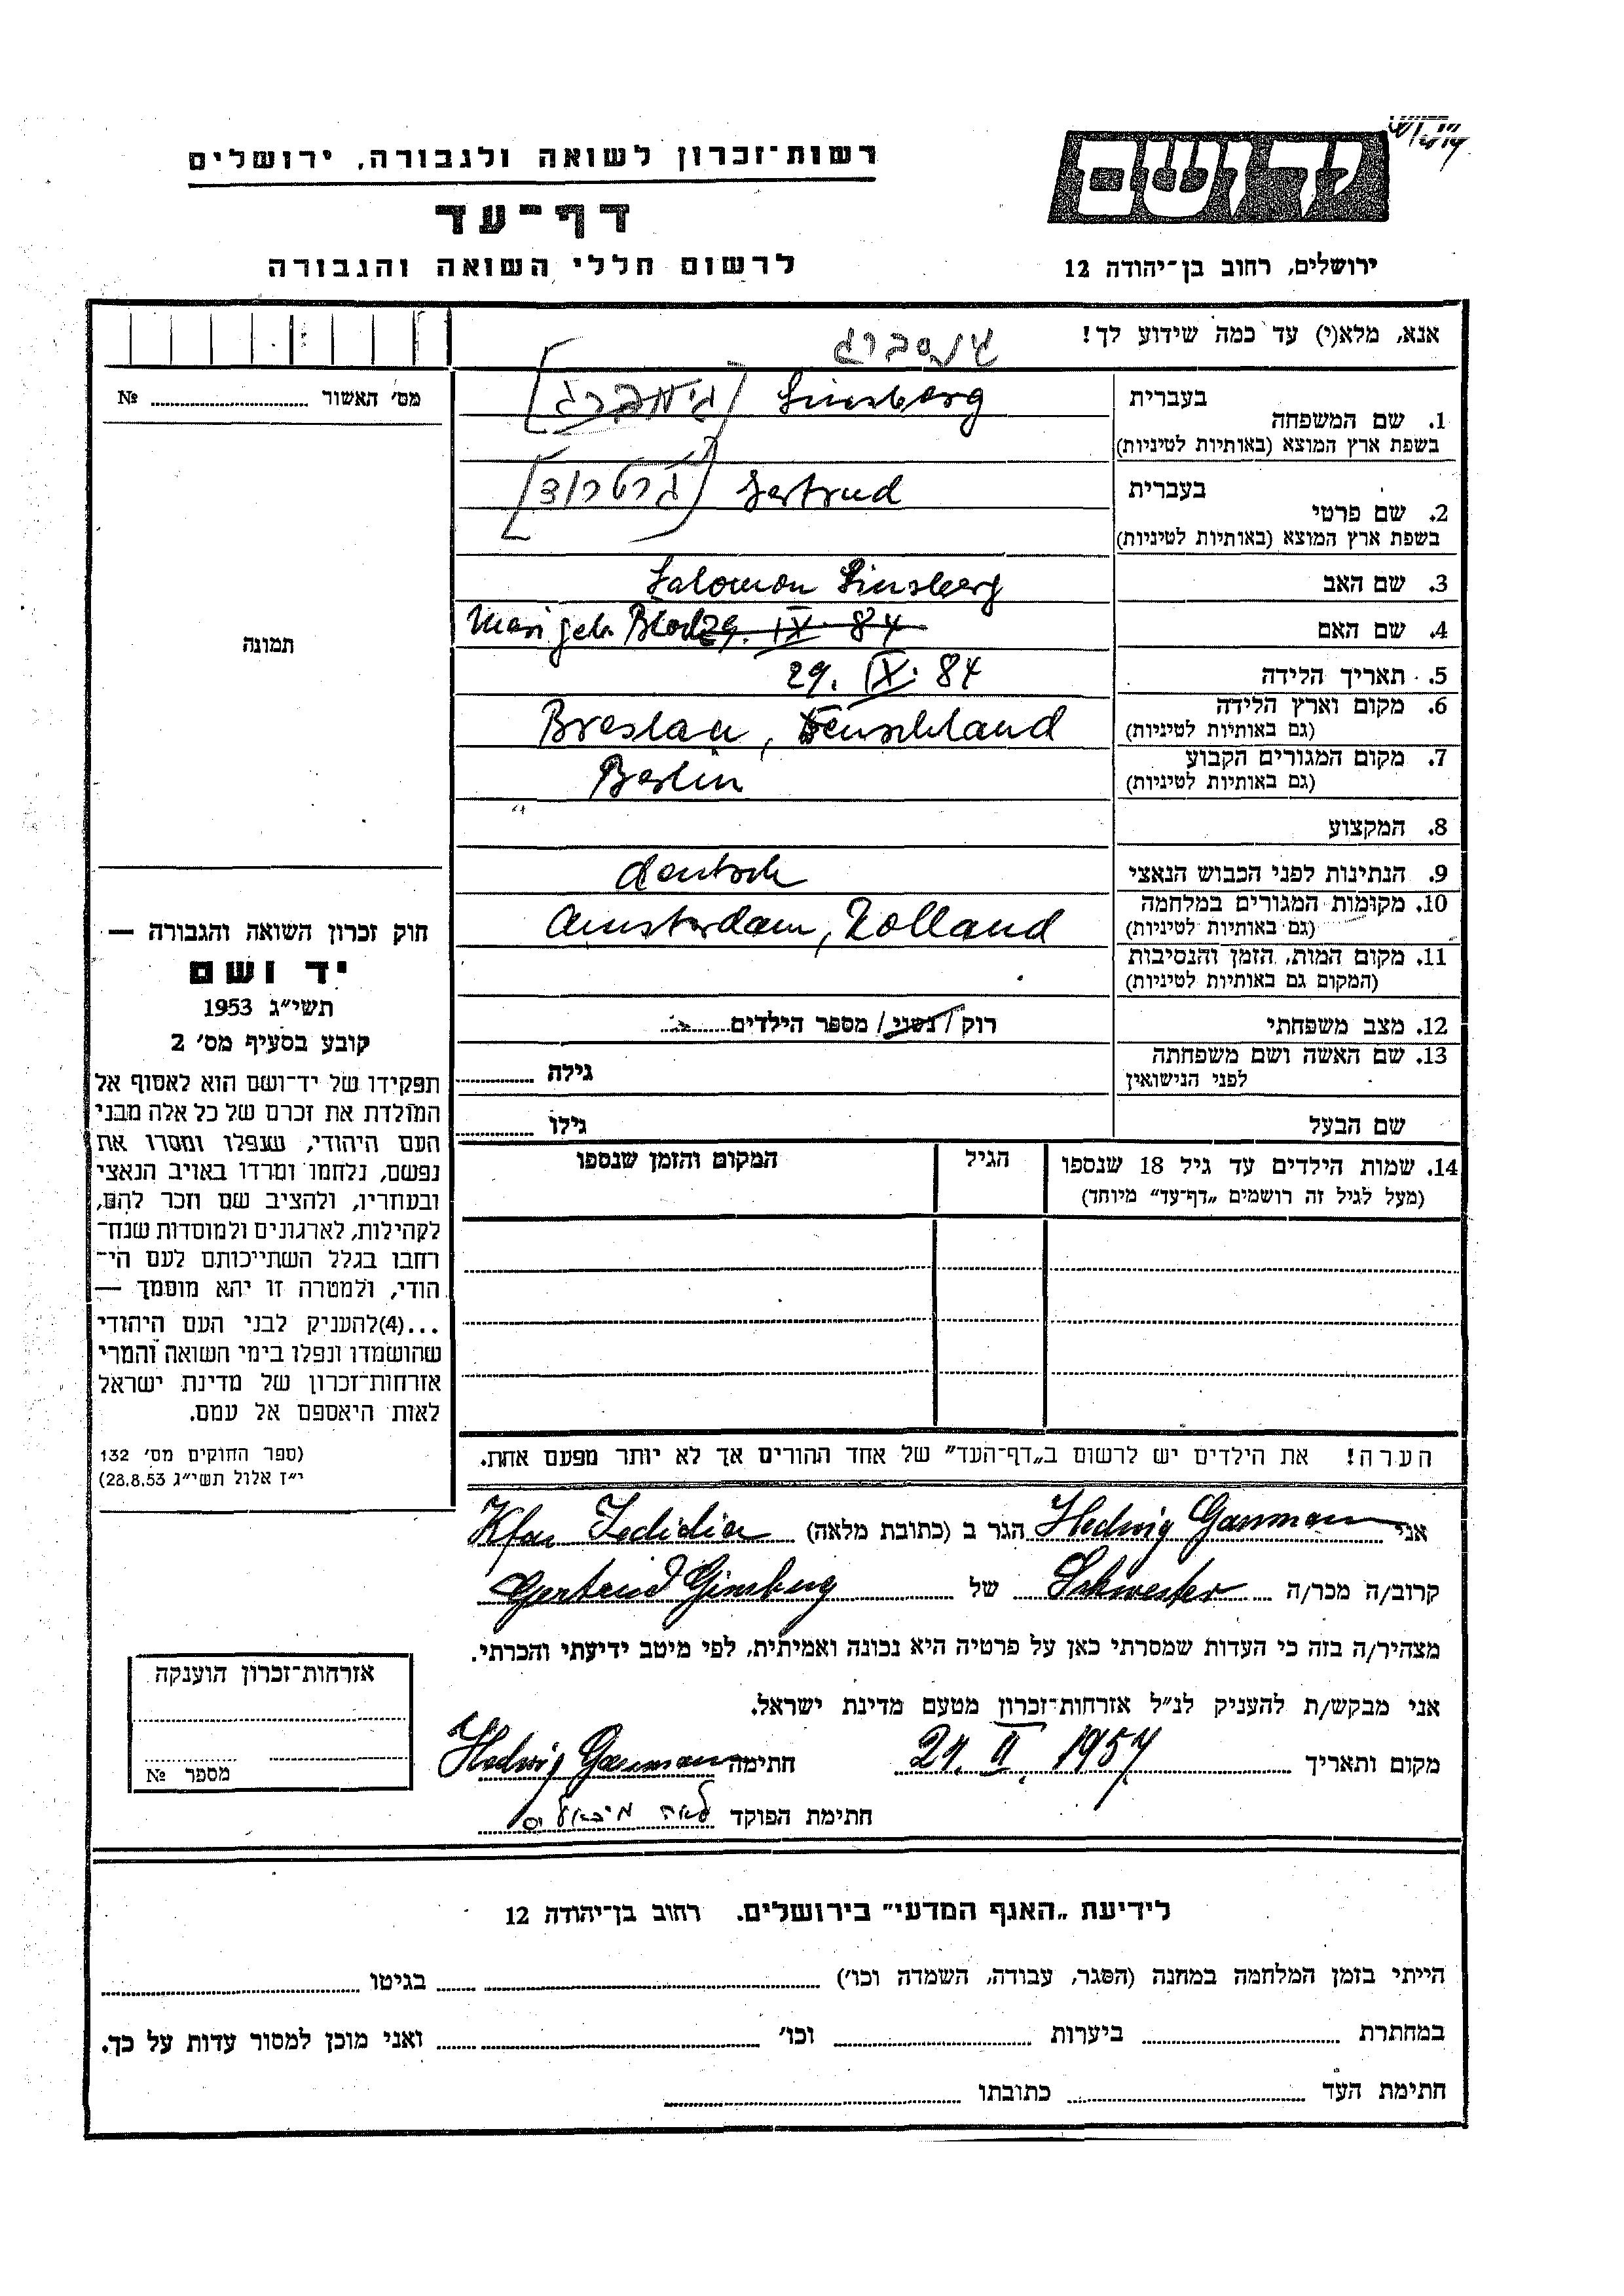 יד ושם
רשות־זכרון לשואה ולגבורה, ירושלים
דף־עד
לרשום חללי השואה והגבורה
ירושלים, רחוב בן־יהודה 12
אנא, מלא(י) עד כמה שידוע לך!
גינסברג
מס׳ האשור ........ №
תמונה
בעברית
1. שם המשפחה Ginsberg [גינזברג]
בשפת ארץ המוצא (באותיות לטיניות)
בעברית
2. שם פרטי Gertrud [גרטרוד]
בשפת ארץ המוצא (באותיות לטיניות)
3. שם האב Salomon Ginsberg
4. שם האם geb. 29. IX. 84
5. תאריך הלידה 29. IX. 84
6. מקום וארץ הלידה Breslau, Deuschland
(גם באותיות לטיניות)
7. מקום המגורים הקבוע Berlin
(גם באותיות לטיניות)
8. המקצוע
9. הנתינות לפני הכבוש הנאצי deutsch
10. מקומות המגורים במלחמה Amsterdam, Holland
(גם באותיות לטיניות)
11. מקום המות, הזמן והנסיבות
(המקום גם באותיות לטיניות)
12. מצב משפחתי רוק / נשוי / מספר הילדים ........
13. שם האשה ושם משפחתה גילה ........
לפני הנישואין
שם הבעל גילו ........
14. שמות הילדים עד גיל 18 שנספו הגיל המקום והזמן שנספו
(מעל לגיל זה רושמים „דף־עד״ מיוחד)
הערה! את הילדים יש לרשום ב„דף־העד״ של אחד ההורים אך לא יותר מפעם אחת.
חוק זכרון השואה והגבורה —
יד ושם
תשי״ג 1953
קובע בסעיף מס׳ 2
תפקידו של יד־ושם הוא לאסוף אל
המולדת את זכרם של כל אלה מבני
העם היהודי, שנפלו ומסרו את
נפשם, נלחמו ומרדו באויב הנאצי
ובעוזריו, ולהציב שם וזכר להם,
לקהילות, לארגונים ולמוסדות שנח־
רחבו בגלל השתייכותם לעם הי־
הודי, ולמטרה זו יהא מוסמך —
...(4)להעניק לבני העם היהודי
שהושמדו ונפלו בימי השואה והמרי
אזרחות־זכרון של מדינת ישראל
לאות היאספם אל עמם.
(ספר החוקים מס׳ 132
י״ז אלול תשי״ג 28.8.53)
אני Hedwig Gassmann הגר ב (כתובת מלאה) Kfar Jedidia
קרוב/ה מכר/ה Schwester של Gertrud Ginsberg
מצהיר/ה בזה כי העדות שמסרתי כאן על פרטיה היא נכונה ואמיתית, לפי מיטב ידיעתי והכרתי.
אני מבקש/ת להעניק לנ״ל אזרחות־זכרון מטעם מדינת ישראל.
מקום ותאריך 21. II. 1957 חתימה Hedwig Gassmann
חתימת הפוקד לאה מיכאליס
אזרחות־זכרון הוענקה
מספר №
לידיעת „האגף המדעי״ בירושלים. רחוב בן־יהודה 12
הייתי בזמן המלחמה במחנה (הסגר, עבודה, השמדה וכו׳) ........ בגיטו ........
במחתרת ........ ביערות ........ וכו׳ ........ ואני מוכן למסור עדות על כך.
חתימת העד ........ כתובתו ........